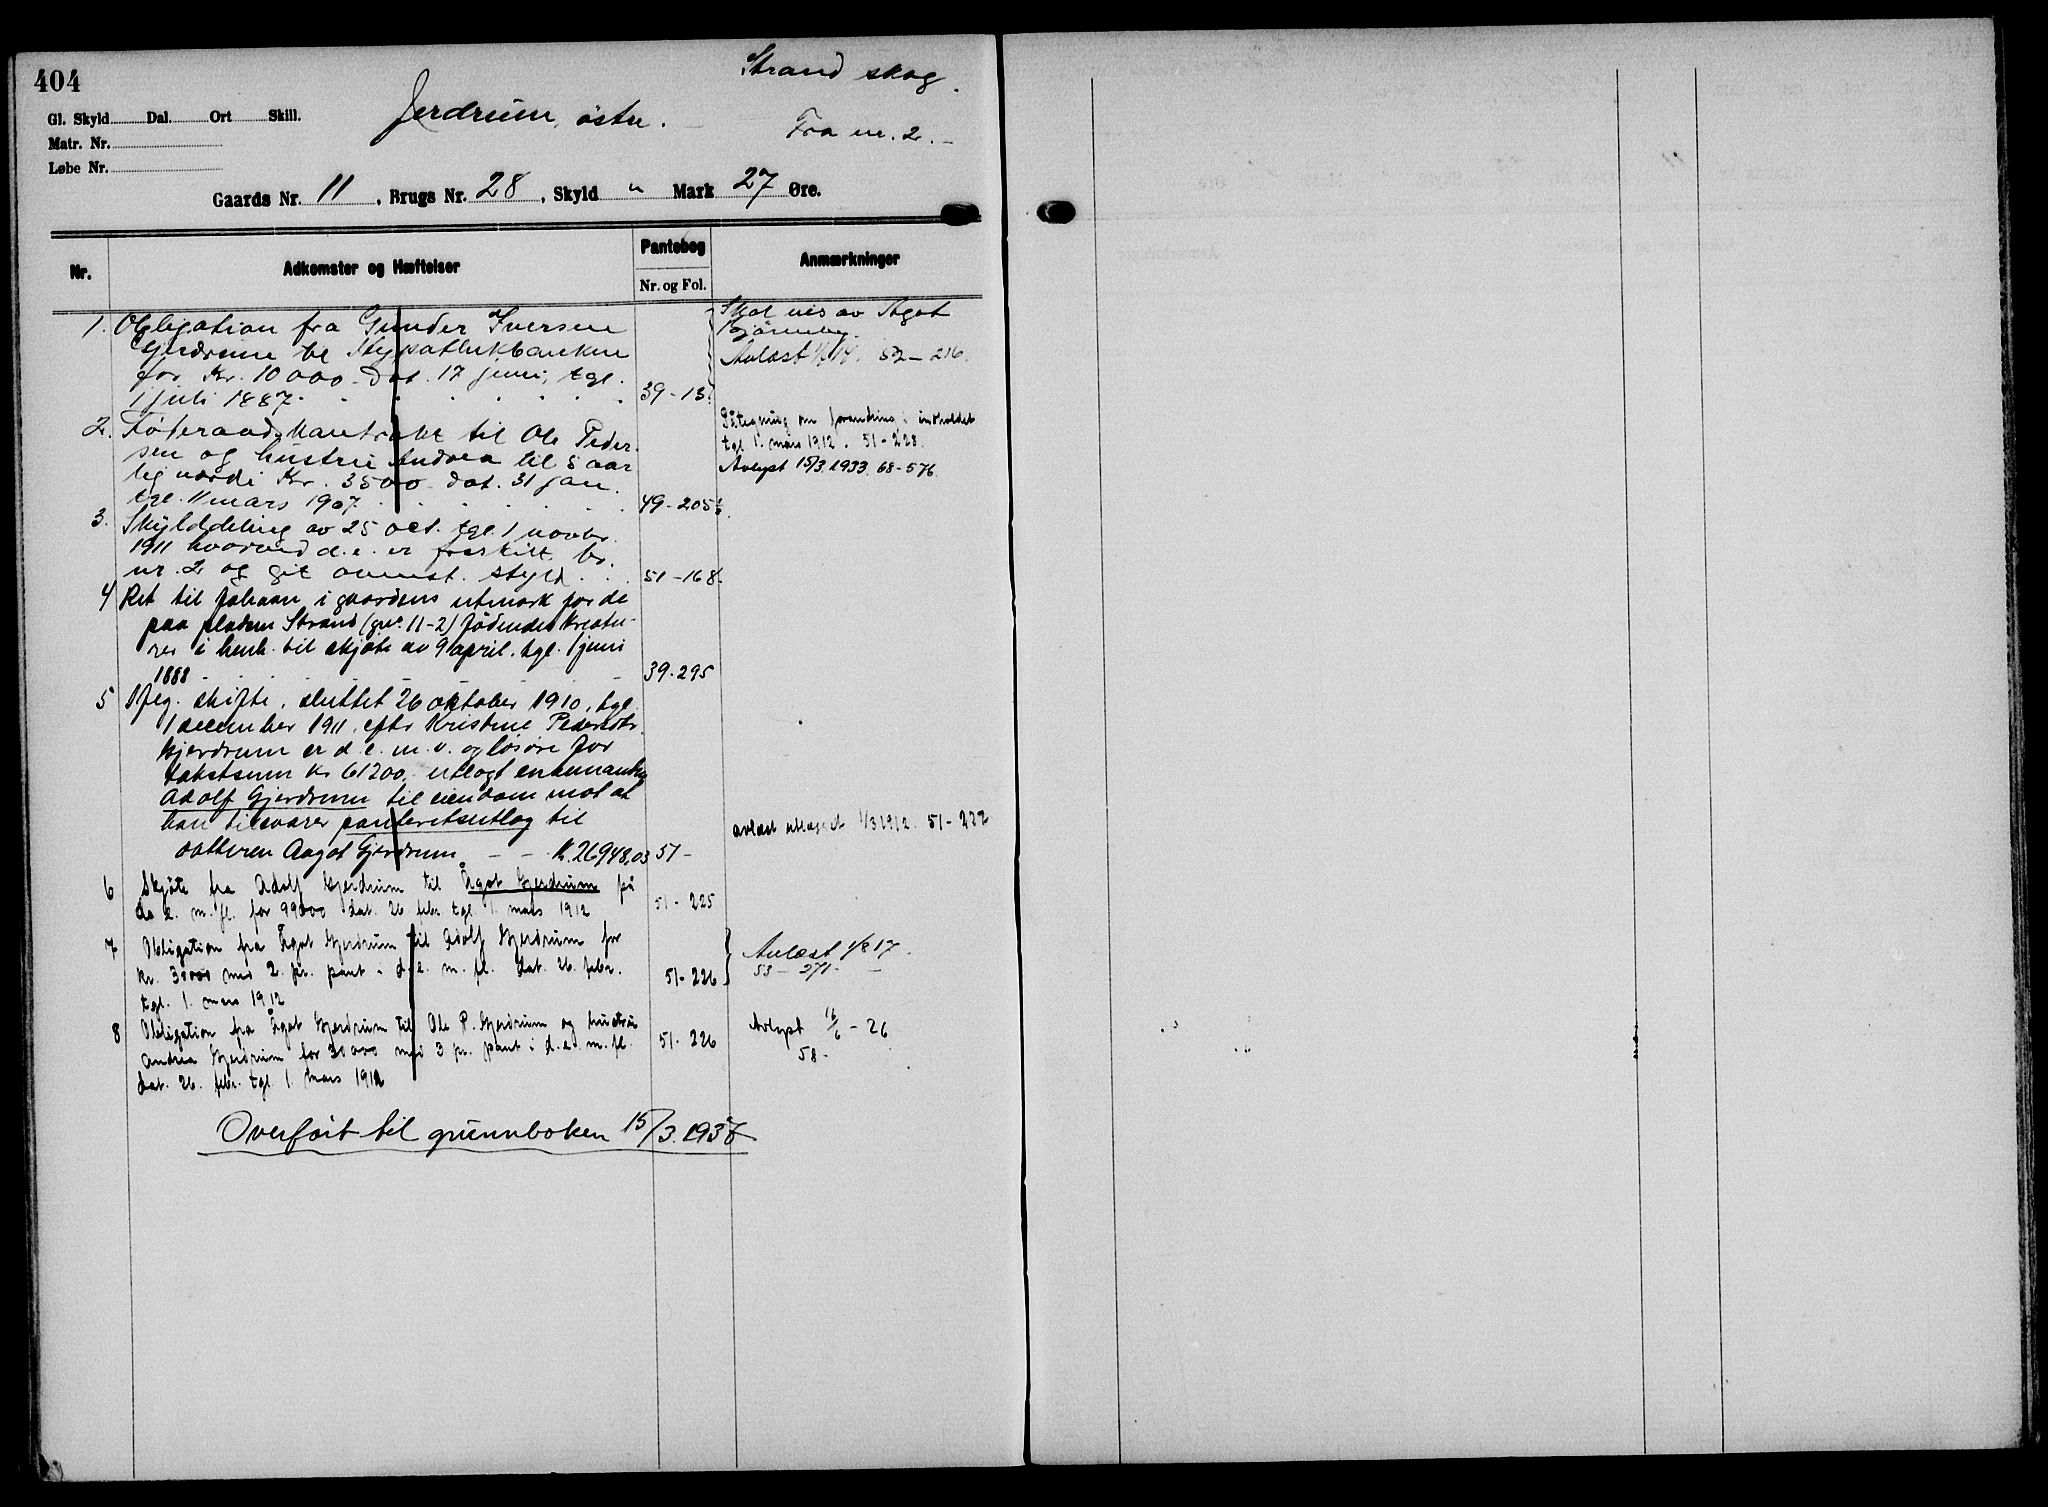 404
Strand skog.
Gl. Skyld Dal. Ort Skill.
Jerdrum, östre.
Fra nr. 2.
Matr. Nr.
Løbe Nr.
Gaards Nr. 11, Brugs Nr. 28, Skyld " Mark 27 Øre.
Nr.
Adkomster og Hæftelser
Pantebog
Nr. og Fol.
Anmærkninger
1. Obligation fra Gunder Iversen
Gjerdrum til Hypothekbanken
for Kr. 10000. Dat. 17 juni, tgl.
1 juli 1887. 39-13
Skal av Agot
Avlæst 52-216.
2. Föderaadskontrakt til Ole Peder-
sen og hustru Andrea til 5 aar
lig værdi Kr. 3500. dat. 31 jan.
tgl. 11 mars 1907. 49-205
Påtegning om forandring i indholdet
tgl 1. mars 1912. 51-228.
Avlyst 15/3.1933. 68-576.
3. Skylddeling av 25 oct. tgl. 1 novbr.
1911 hvorved d. e. er fraskilt br.
nr. 2 og git skyld. 51-168.
4 Ret til havn i gaardens utmark for de
paa pladsen Strand (gnr. 11-2) födende kreatu-
rer i henh. til skjöte av 9 april. tgl. 1 juni
1888 39-295
5 Ifølg. skifte, sluttet 26 oktober 1910, tgl.
1 december 1911, efter Kristine Pedersdtr.
Gjerdrum er d. e. m. v. og lösöre for
takstsum Kr 61200. utlagt enkemanden
Adolf Gjerdrum til eiendom mot at
han tilsvarer panteretsutlæg til
datteren Aagot Gjerdrum - - K. 26948,03 51-
avlæst utlægget 1/3 1912. 51-222
6 Skjöte fra Adolf Gjerdrum til Ågot Gjerdrum på
do e. m. fl. for 99000 dat. 26 febr. tgl. 1. mars 1912 51-225
7 Obligation fra Ågot Gjerdrum til Adolf Gjerdrum for
kr. 30000 med 2. pr. pant i d. e. m. fl. dat. 26. febr.
tgl. 1. mars 1912 51-226
Avlæst 1/8 17.
53-271.
8 Obligation fra Ågot Gjerdrum til Ole P. Gjerdrum og hustru
Andrea Gjerdrum for 30000 med 3 pr. pant i d. e. m. fl.
dat. 26. febr. tgl. 1. mars 1912 51-226
Avlyst 16/6-26
58-
Overfört til grunnboken 15/3.1938